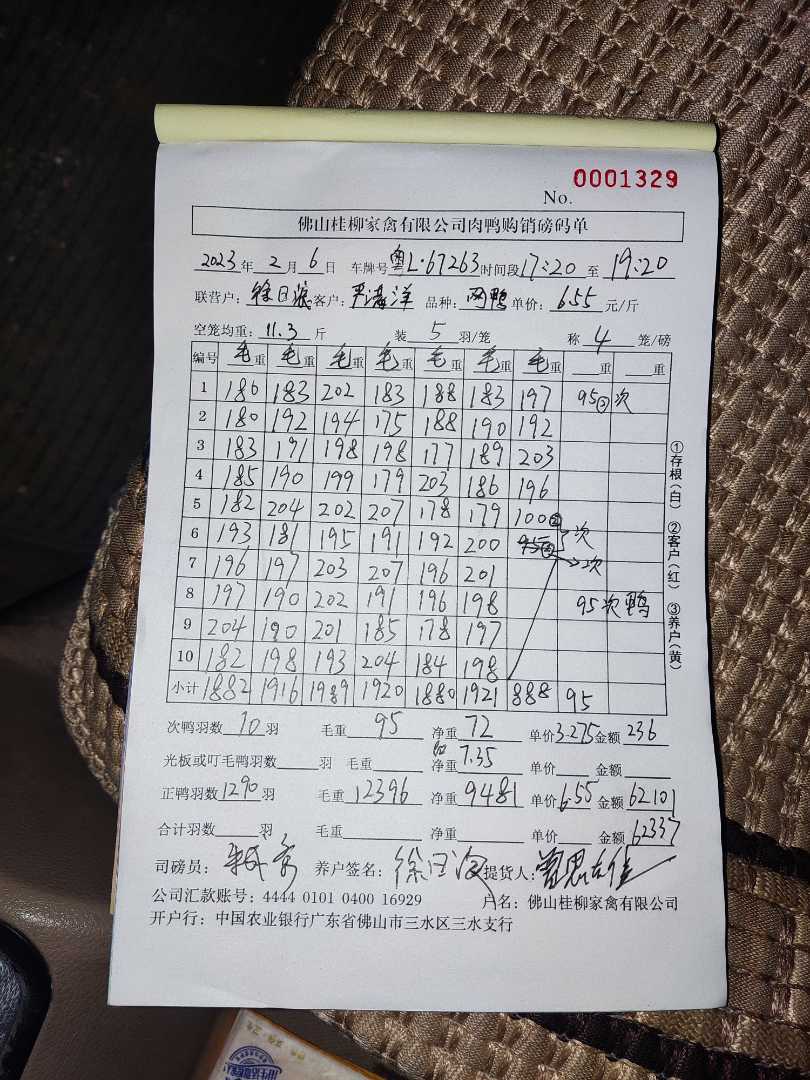 No. 0001329
佛山桂柳家禽有限公司肉鸭购销磅码单
2023年 2月 6日 车牌号粤L·67263时间段17:20至19:20
联营户: 客户: 品种: 单价: 6.55 元/斤
空笼均重: 11.3 斤 装 5 羽/笼 称 4 笼/磅
编号 毛重 毛重 毛重 毛重 毛重 毛重 毛重 重 重
1 186 183 202 183 188 183 197 95② 次
2 180 192 194 175 188 190 192
3 183 191 198 198 177 189 203
4 185 190 199 179 203 186 196
5 182 204 202 207 178 179 100②
6 193 181 195 191 192 200 次
7 196 197 203 207 196 201 次
8 197 190 202 191 196 198 95次鸭
9 204 190 201 185 178 197
10 182 198 193 204 184 198
小计 1882 1916 1989 1920 1880 1921 888 95
次鸭羽数 10 羽 毛重 95 净重 72 单价3.275金额 236
光板或叮毛鸭羽数 羽 毛重 净重 7.35 单价 金额
正鸭羽数1290羽 毛重12396 净重9481单价6.55金额62101
合计羽数 羽 毛重 净重 单价 金额62337
司磅员: 养户签名: 提货人:
公司汇款账号: 4444 0101 0400 16929 户名: 佛山桂柳家禽有限公司
开户行: 中国农业银行广东省佛山市三水区三水支行
①存根(白) ②客户(红) ③养户(黄)